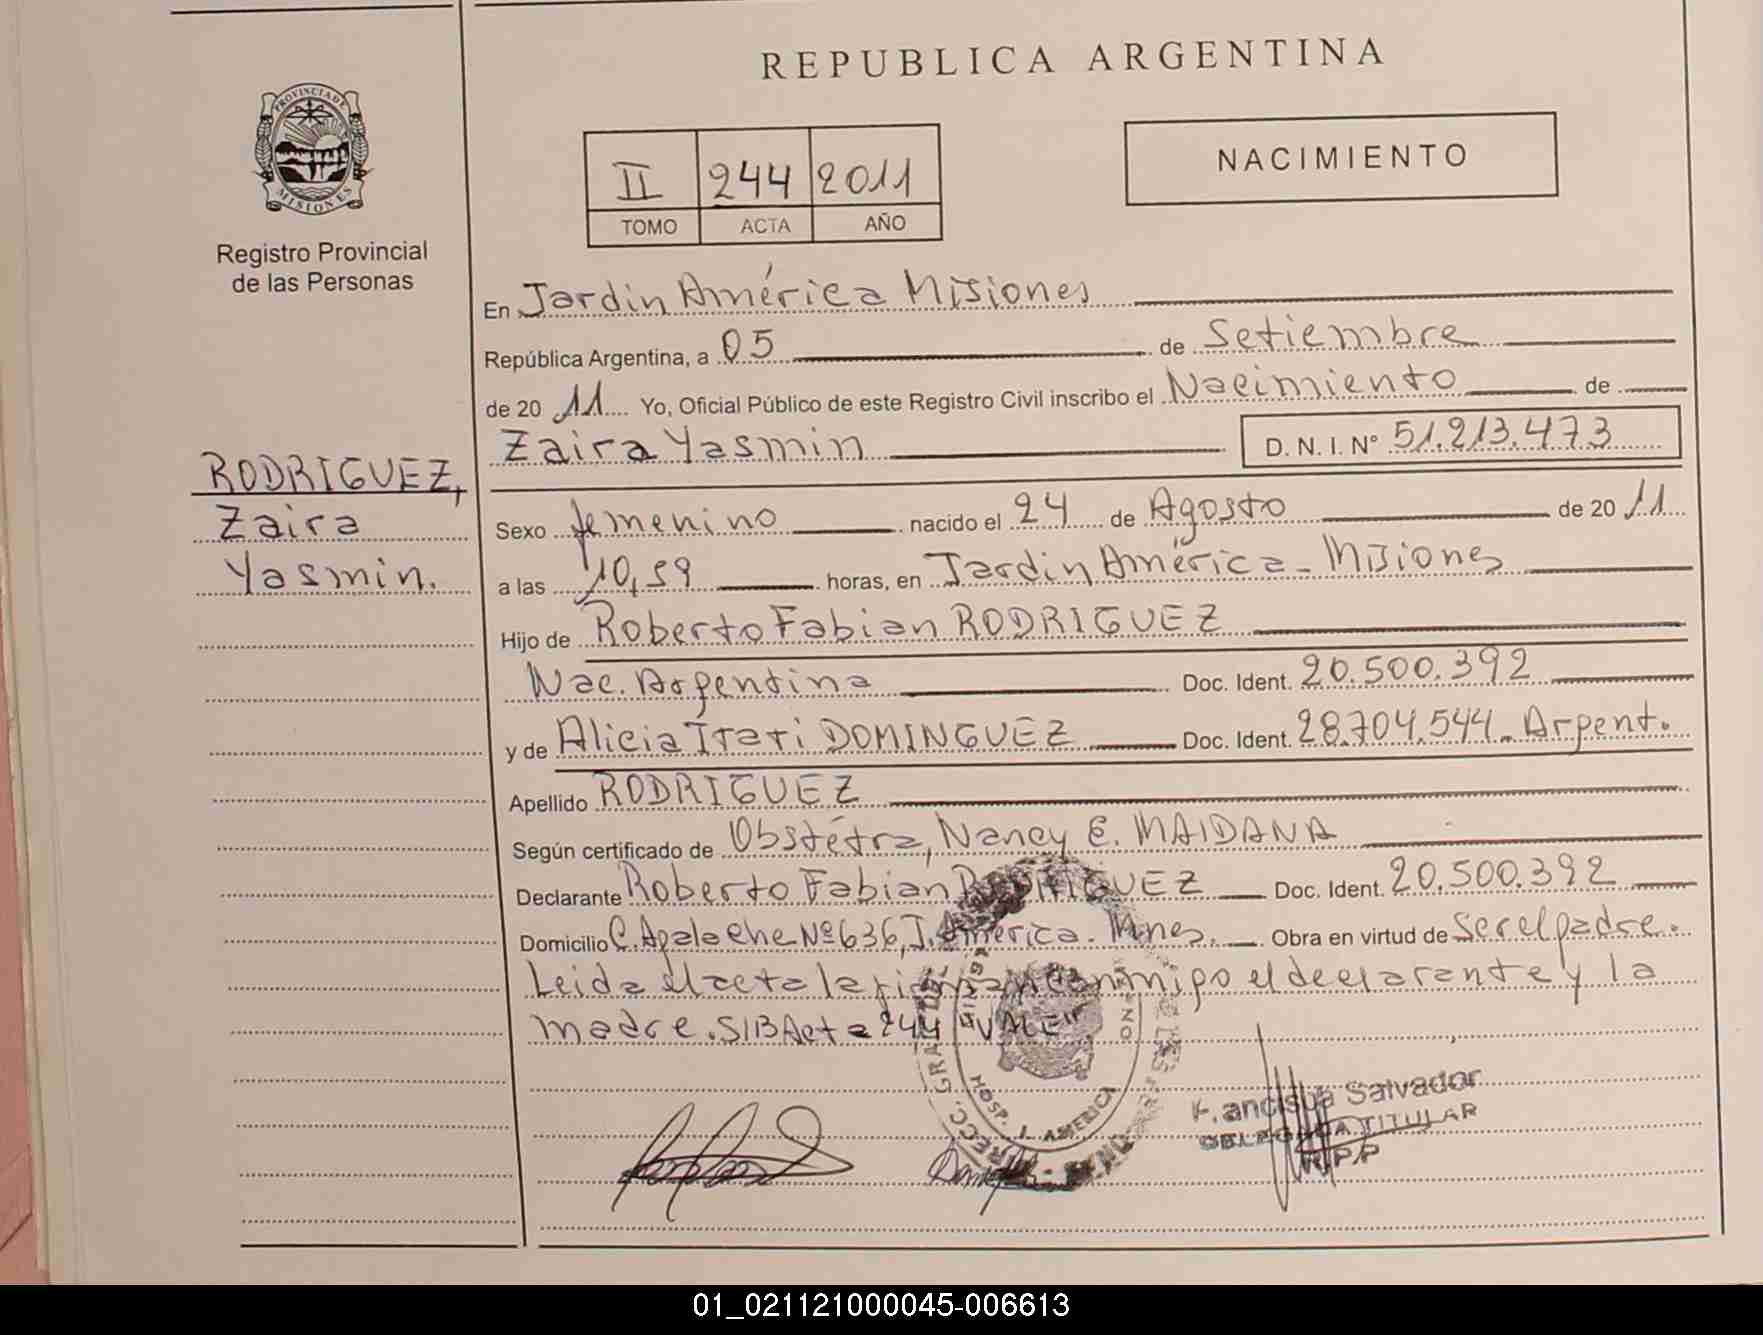 REPUBLICA ARGENTINA
PROVINCIA DE
MISIONES
Registro Provincial
de las Personas
II 244 2011
TOMO ACTA AÑO
NACIMIENTO
En Jardin América Misiones
República Argentina, a 05 de Setiembre
de 20 11 Yo, Oficial Público de este Registro Civil inscribo el Nacimiento de
Zaira Yasmin D. N. I. Nº 51.213.473
RODRIGUEZ,
Zaira
Yasmin.
Sexo femenino nacido el 24 de Agosto de 20 11
a las 10,59 horas, en Jardin América - Misiones
Hijo de Roberto Fabian RODRIGUEZ
Nac. Argentina Doc. Ident. 20.500.392
y de Alicia Itati DOMINGUEZ Doc. Ident. 28.704.544 - Argent.
Apellido RODRIGUEZ
Según certificado de Obstétra, Nancy E. MAIDANA
Declarante Roberto Fabian RODRIGUEZ Doc. Ident. 20.500.392
Domicilio C. Apalache Nº 636, J. América - Mnes. Obra en virtud de Ser el padre.
Leida el acta la firman conmigo el declarante y la
madre. S/B Acta 244 "VALE"
HOSP. J. AMERICA
Francisca Salvador
DELEGADA TITULAR
R.P.P
01_021121000045-006613